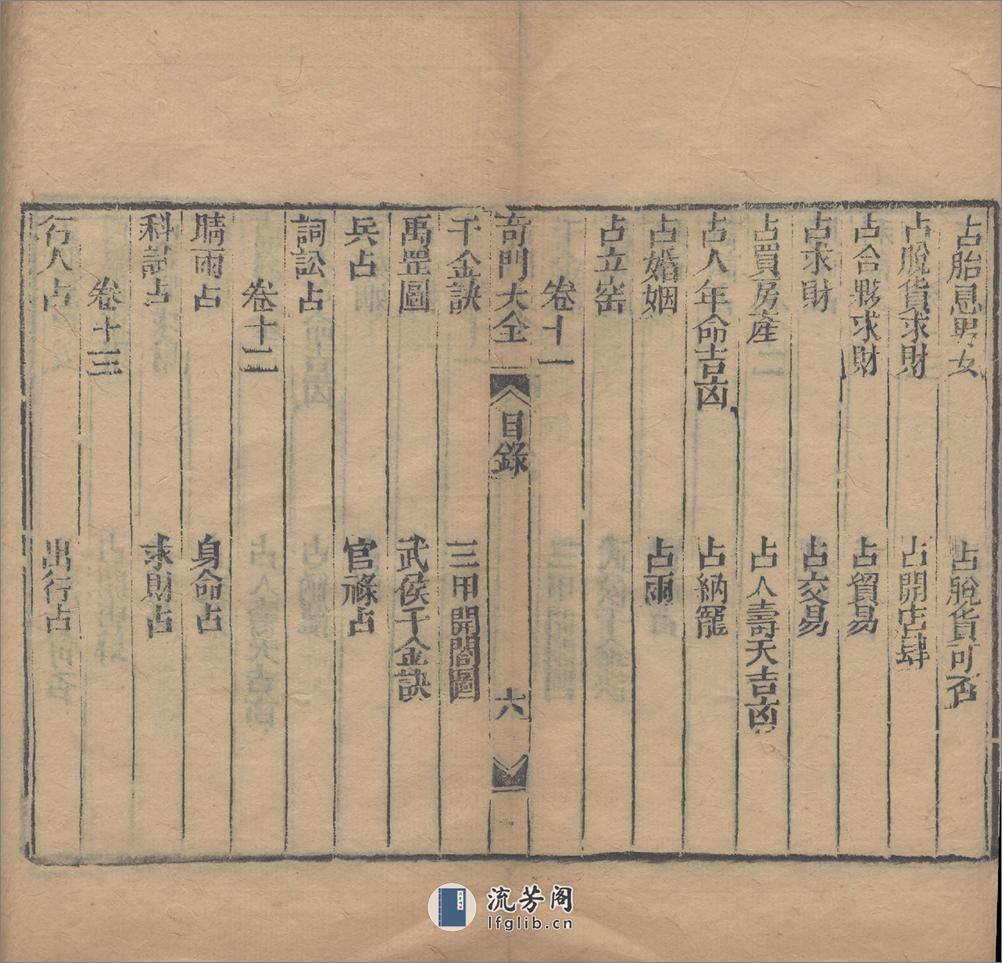 占胎息男女　占脫貨可否
占脫貨求財　占開店肆
占合夥求財　占貿易
占求財　占交易
占買房產　占人壽夭吉凶
占人年命吉凶　占納寵
占婚姻　占雨
占立窑
卷十一
奇門大全　目錄　六
千金訣　三甲開闔圖
禹罡圖　武侯千金訣
兵占　官祿占
詞訟占
卷十二
晴雨占　身命占
科試占　求財占
卷十三
行人占　出行占
流芳阁
lfglib.cn